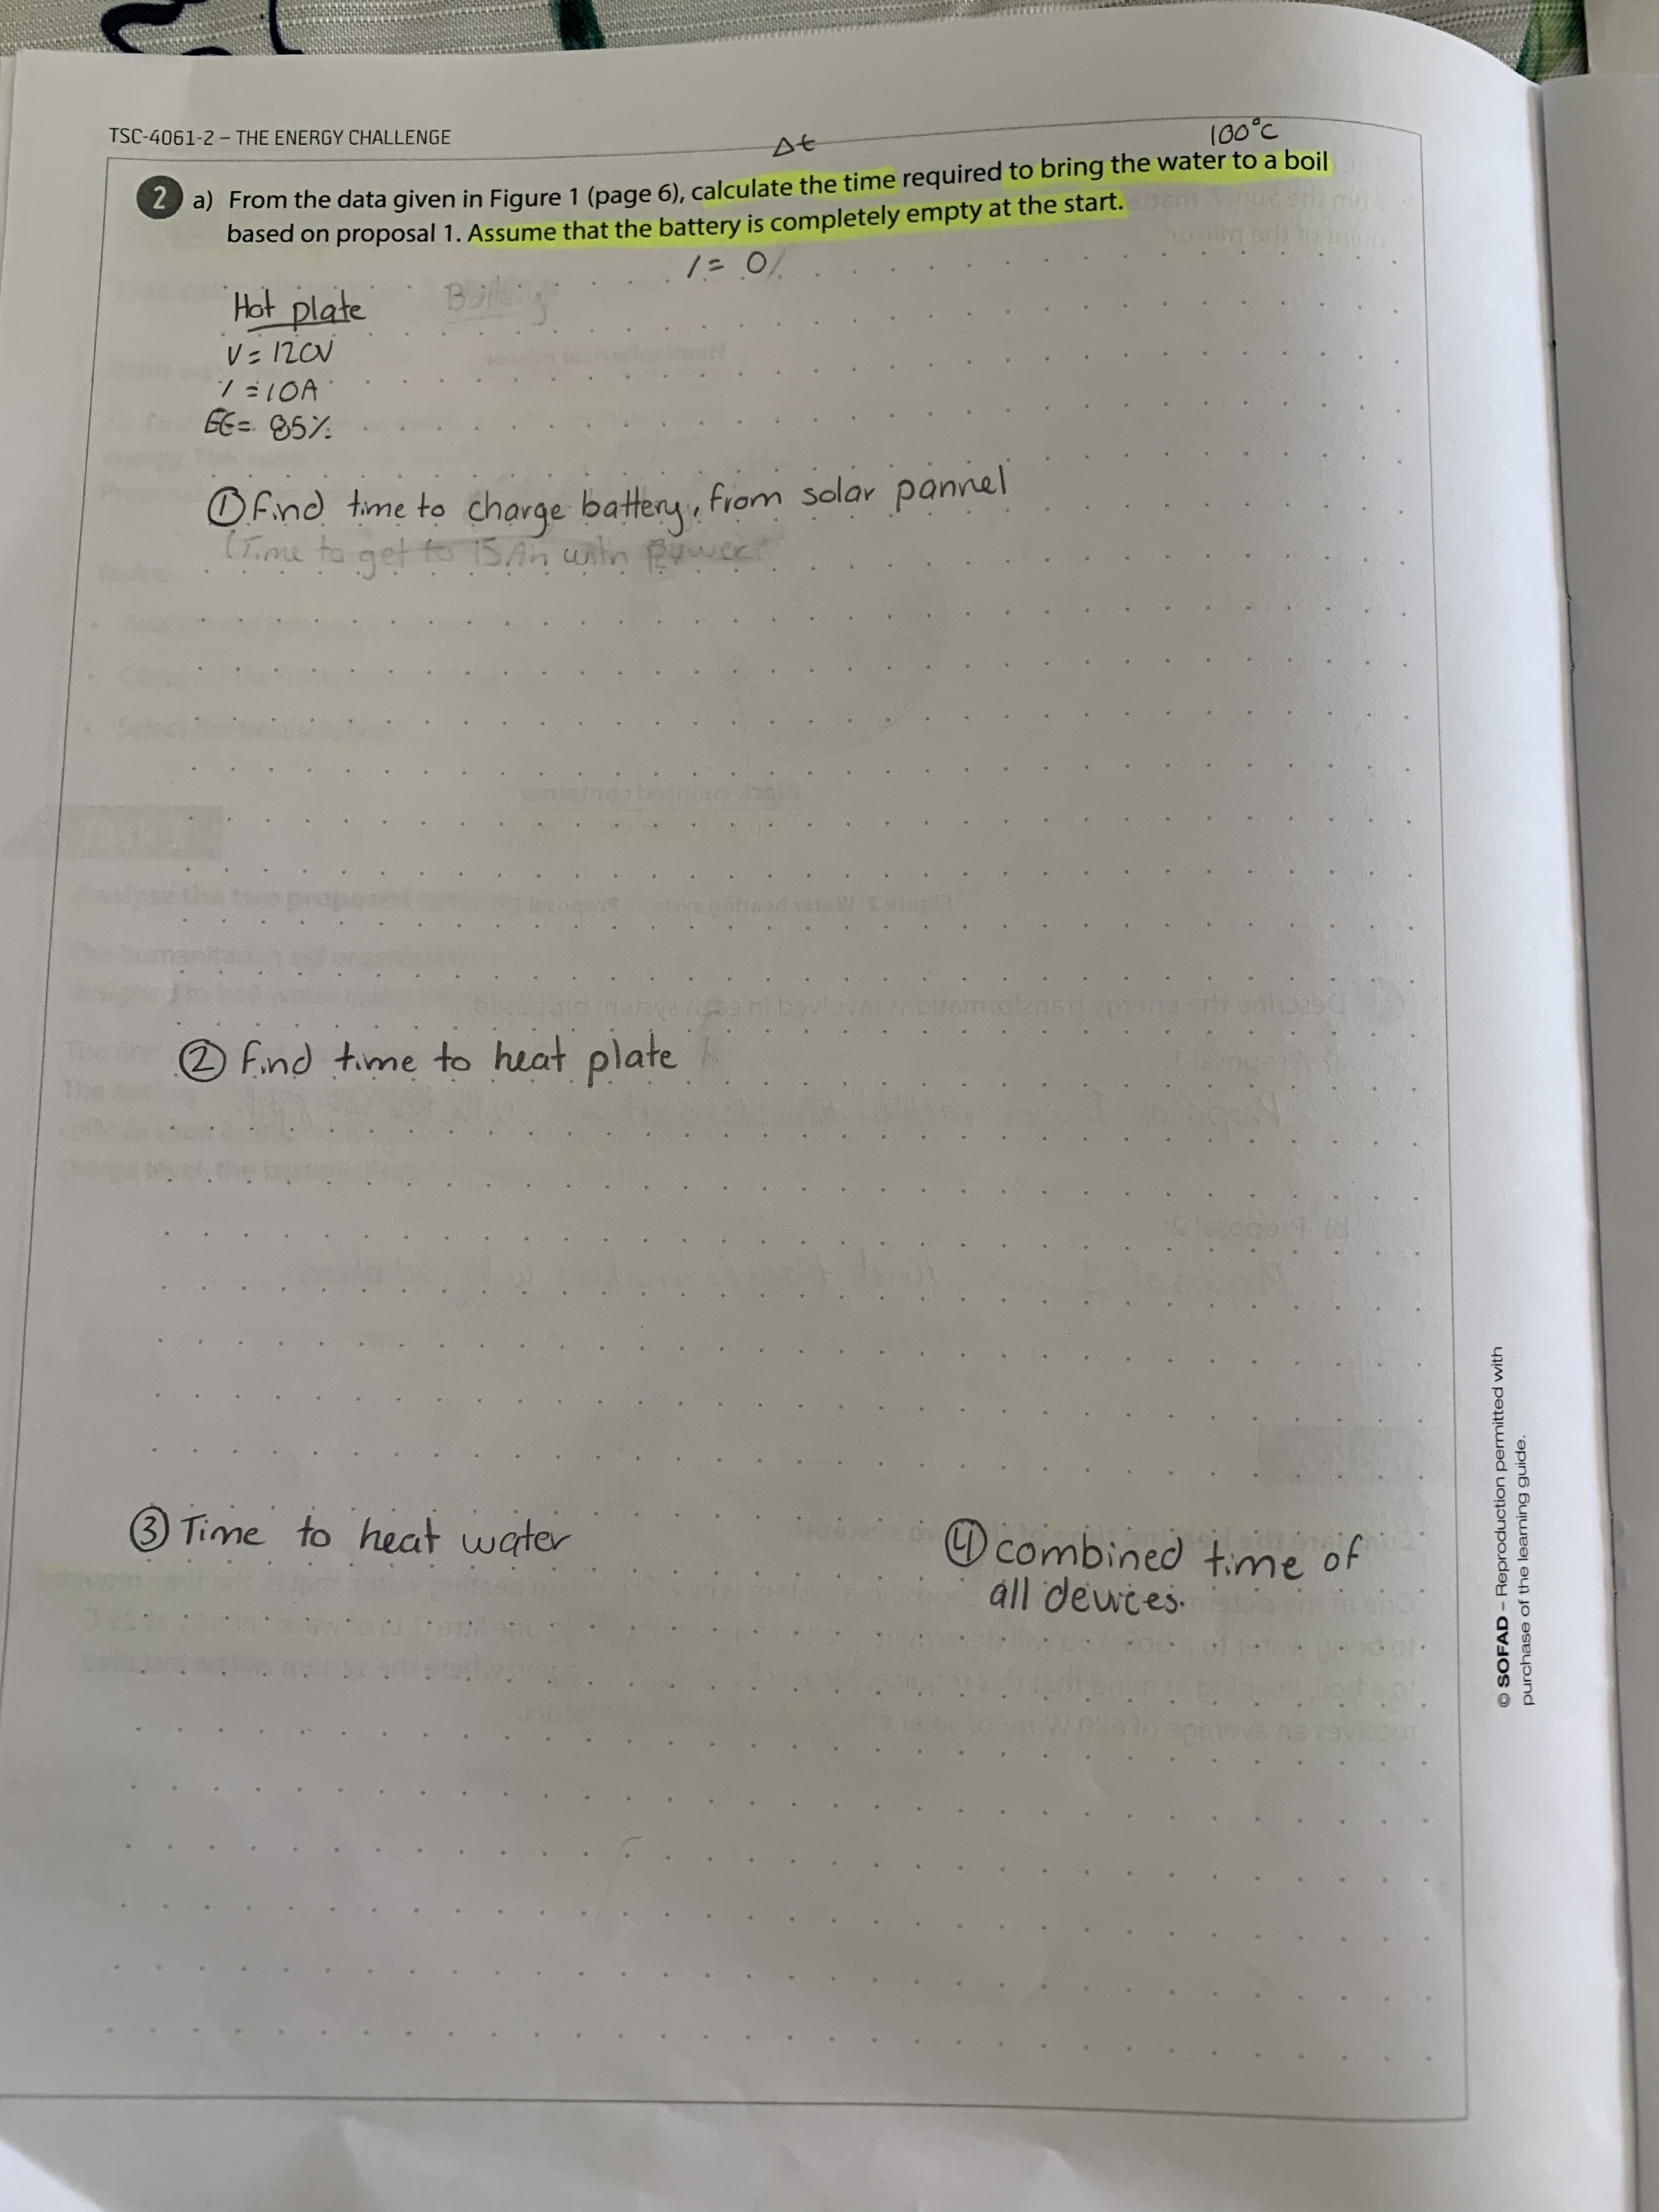 TSC-4061-2 – THE ENERGY CHALLENGE
Δt
100°C
2 a) From the data given in Figure 1 (page 6), calculate the time required to bring the water to a boil
based on proposal 1. Assume that the battery is completely empty at the start.
I = 0%
Hot plate
V = 120V
I = 10A
EE = 85%
① Find time to charge battery, from solar pannel
(Time to get to 15Ah with power
② Find time to heat plate
③ Time to heat water
④ combined time of
all devices.
© SOFAD – Reproduction permitted with
purchase of the learning guide.